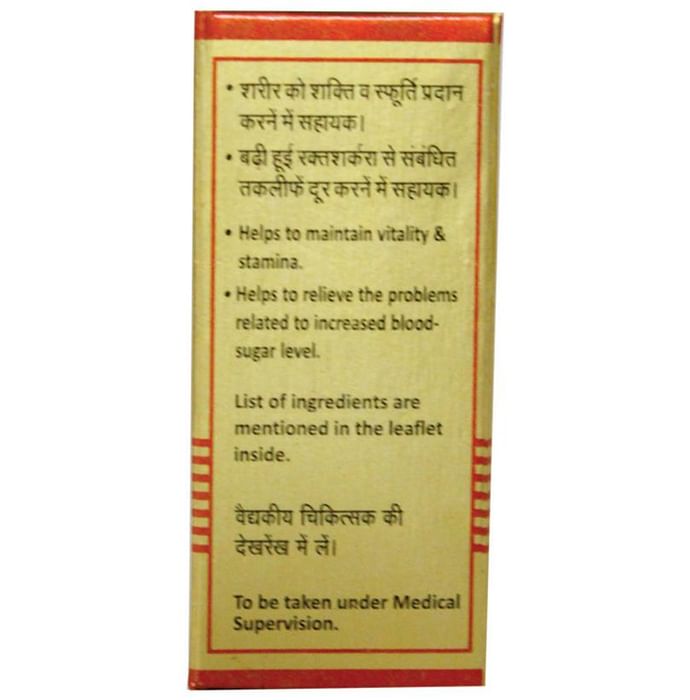 • शरीर को शक्ति व स्फूर्ति प्रदान
करनें में सहायक।
• बढी हूई रक्तशर्करा से संबंधित
तकलीफें दूर करनें में सहायक।
• Helps to maintain vitality &
stamina.
• Helps to relieve the problems
related to increased blood-
sugar level.
List of ingredients are
mentioned in the leaflet
inside.
वैद्यकीय चिकित्सक की
देखरेंख में लें।
To be taken under Medical
Supervision.